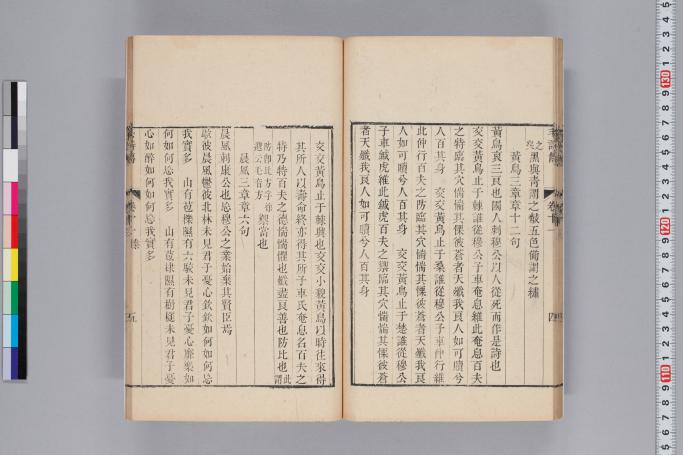 黑與青謂之黻五色備謂之繡
黃鳥三章章十二句
黃鳥哀三良也國人刺穆公以人從死而作是詩也
交交黃鳥止于棘誰從穆公子車奄息維此奄息百夫
之特臨其穴惴惴其慄彼蒼者天殲我良人如可贖兮
人百其身　交交黃鳥止于桑誰從穆公子車仲行維
此仲行百夫之防臨其穴惴惴其慄彼蒼者天殲我良
人如可贖兮人百其身　交交黃鳥止于楚誰從穆公
子車鍼虎維此鍼虎百夫之禦臨其穴惴惴其慄彼蒼
者天殲我良人如可贖兮人百其身
四
交交黃鳥止于棘興也交交小貌黃鳥以時往來得
其所人以壽命終亦得其所子車氏奄息名百夫之
特乃特百夫之德惴惴懼也殲盡良善也防比也此謂
防即比方字 云毛音方禦當也
晨風三章章六句
晨風刺康公也忘穆公之業始棄其賢臣焉
鴥彼晨風鬱彼北林未見君子憂心欽欽如何如何忘
我實多　山有苞櫟隰有六駮未見君子憂心靡樂如
何如何忘我實多　山有苞棣隰有樹檖未見君子憂
心如醉如何如何忘我實多
五